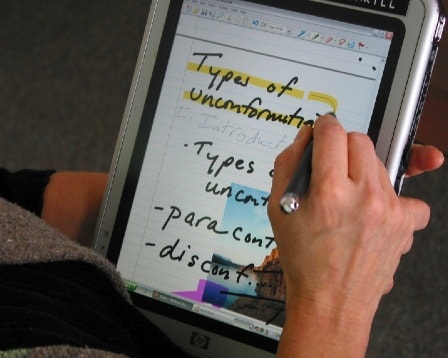 Types of
unconformiti
I. Introduct
• Types
uncont
- para cont
- disconf...
hp